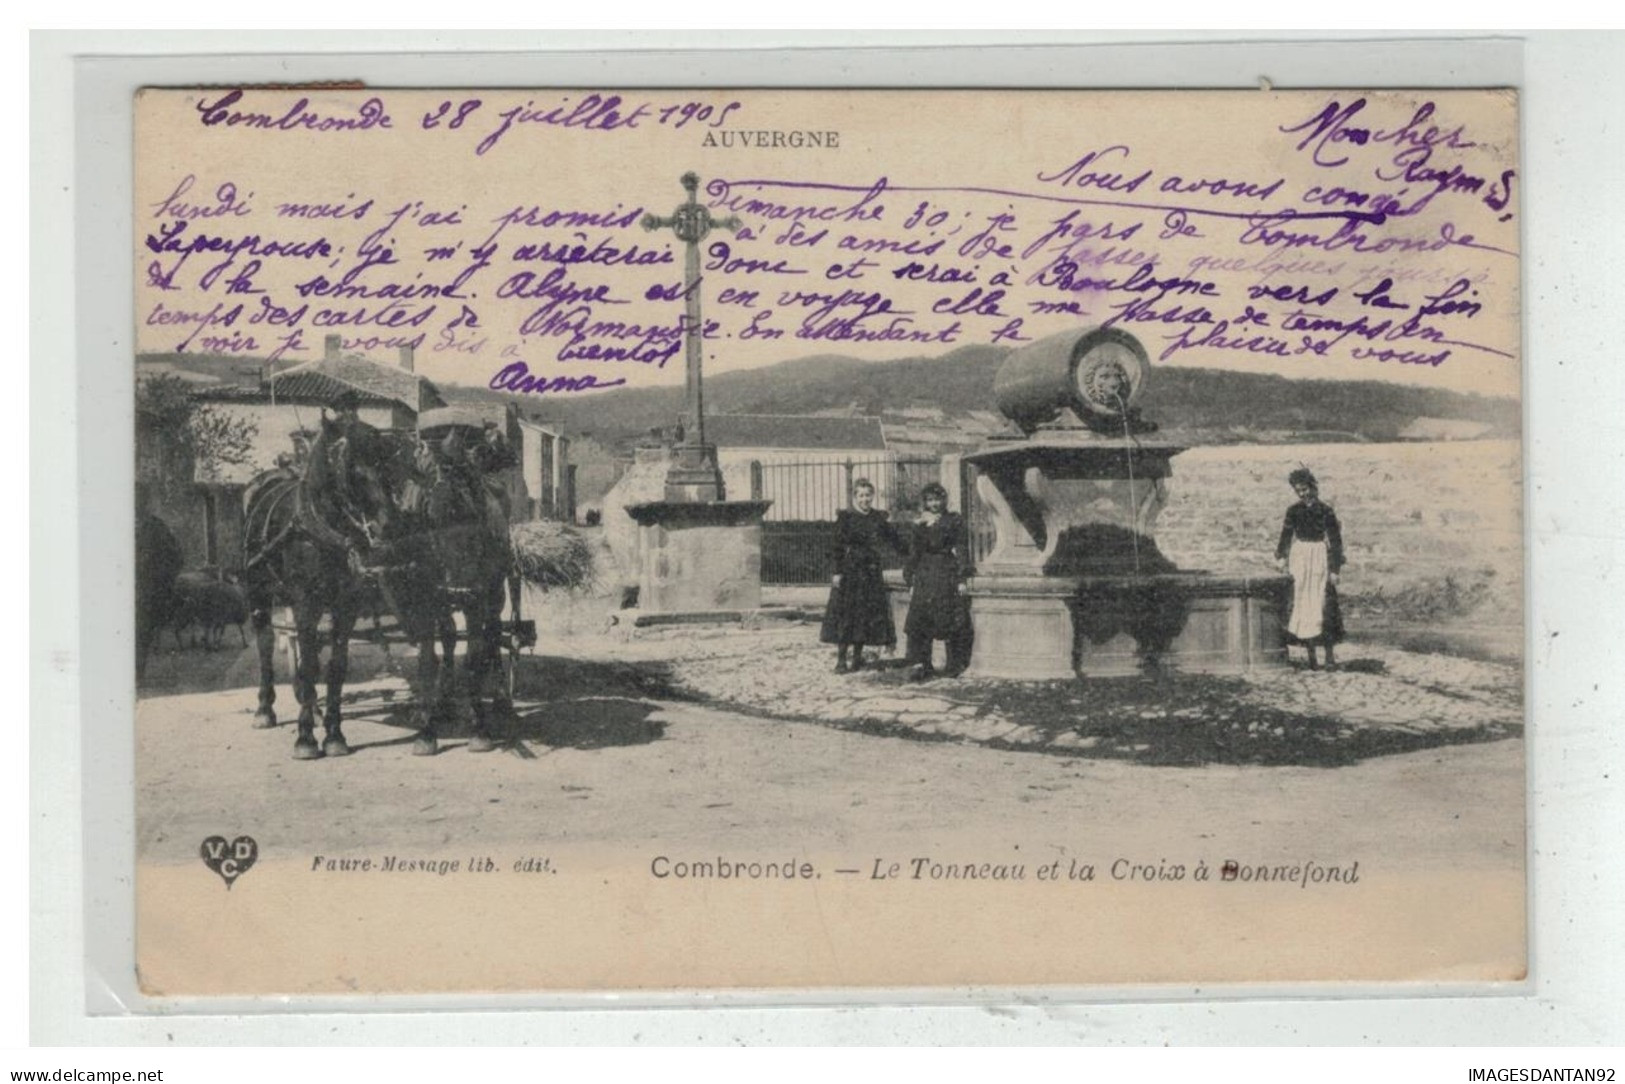 Combronde 28 juillet 1905
AUVERGNE
Mon cher
Raymond,
Nous avons congé
Dimanche 30; je pars de Combronde
lundi mais j'ai promis à des amis de passer quelques jours à
Lapeyrouse; je m'y arrêterai donc et serai à Boulogne vers la fin
de la semaine. Alyne est en voyage elle me passe de temps en
temps des cartes de Normandie. En attendant le plaisir de vous
voir je vous dis à bientôt.
Anna
VDC
Faure-Message lib. édit.
Combronde. — Le Tonneau et la Croix à Bonnefond
https://www.delcampe.net
IMAGESDANTAN92